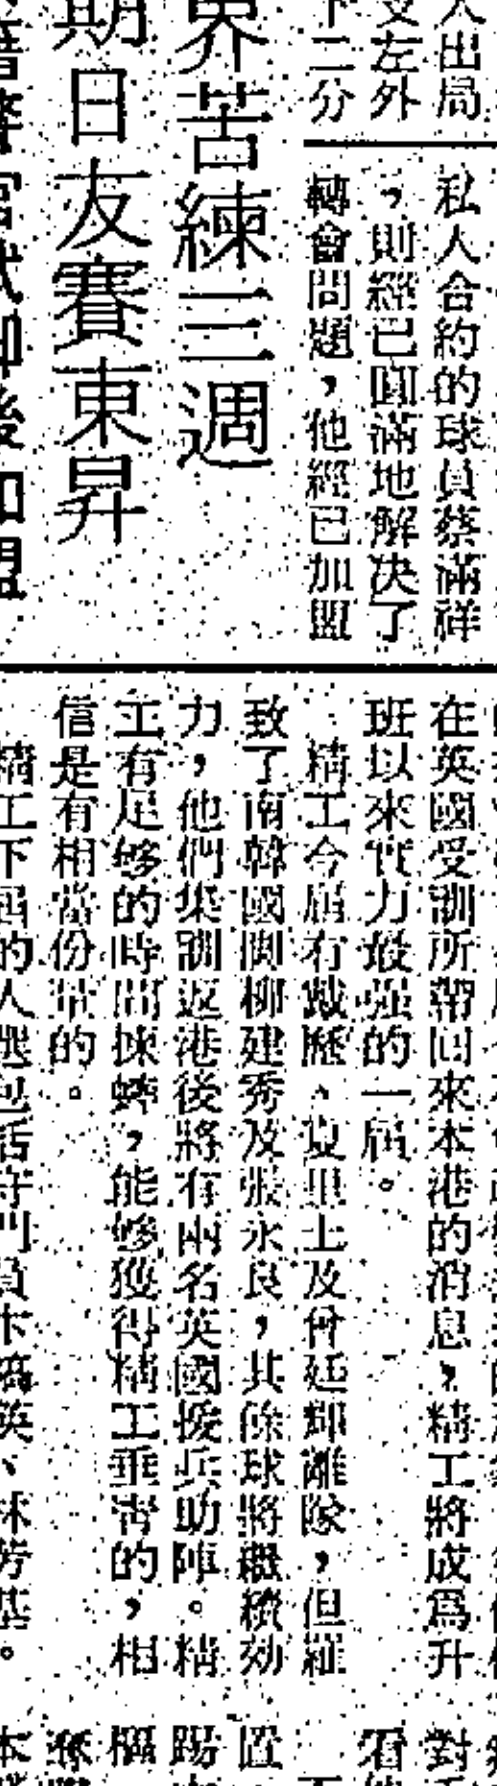 人出局
左外
下二分
私人合約的球員蔡滿祥
，則經已圓滿地解决了
轉會問題，他經已加盟
界苦練三週
期日友賽東昇
後加盟
在英國受訓所帶回來本港的消息，精工將成爲升
班以來實力最强的一屆。
精工今屆有戴歷、夏里士及曾廷輝離隊，但羅
致了南韓國脚柳建秀及張永良，其餘球將繼續効
力，他們集訓返港後將有兩名英國援兵助陣。精
工有足够的時間揀蟀，能够獲得精工垂青的，相
信是有相當份量的。
精工下屆的人選包括守門員卞鏑英、林芳基。
對
看
置
踢
樞